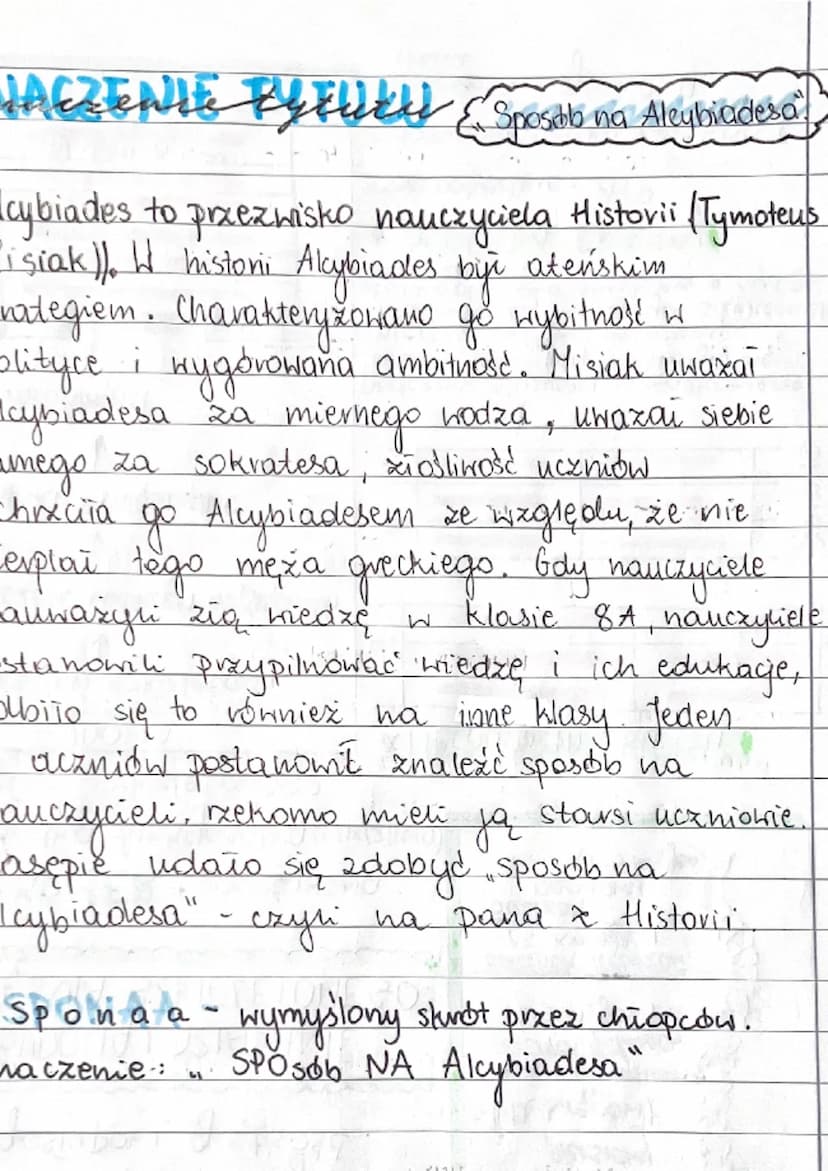 NACZENIE TYTUŁU „Sposób na Alcybiadesa"
lcybiades to przezwisko nauczyciela Historii (Tymoteus
isiak)). W historii Alcybiades był ateńskim
rategiem. Charakteryzowano go wybitność w
olityce i wygórowana ambitność. Misiak uważał
lcybiadesa za miernego wodza, uważał siebie
amego za sokratesa, złośliwość uczniów
chrzciła go Alcybiadesem ze względu, że nie
ierpiał tego męża greckiego. Gdy nauczyciele
auważyli złą wiedzę w klasie 8A, nauczyliele
stanowili przypilnować wiedzę i ich edukację,
dbiło się to również na inne klasy. Jeden
uczniów postanowił znaleźć sposób na
auczycieli, rzekomo mieli ją starsi uczniowie.
asępie udało się zdobyć „sposób na
lcybiadesa" - czyli na pana z Historii.
SPONAA - wymyślony skrót przez chłopców.
naczenie: „SPOsób NA Alcybiadesa"